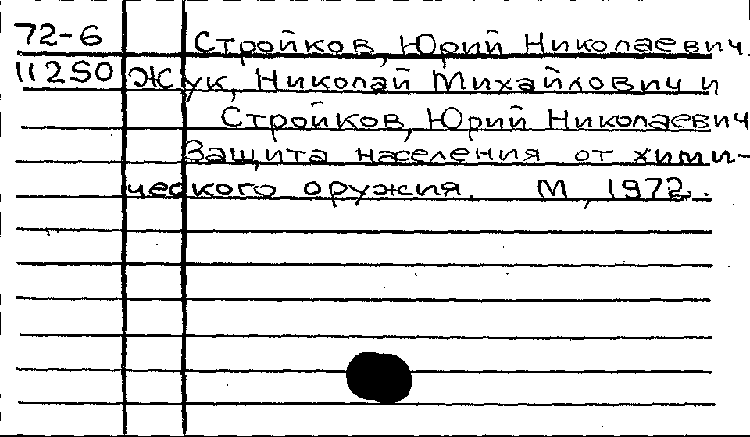 72-6 Стройков, Юрий Николаевич.
11250 Жук, Николай Михайлович и
Стройков, Юрий Николаевич
Защита населения от хими-
ческого оружия. М, 1972.